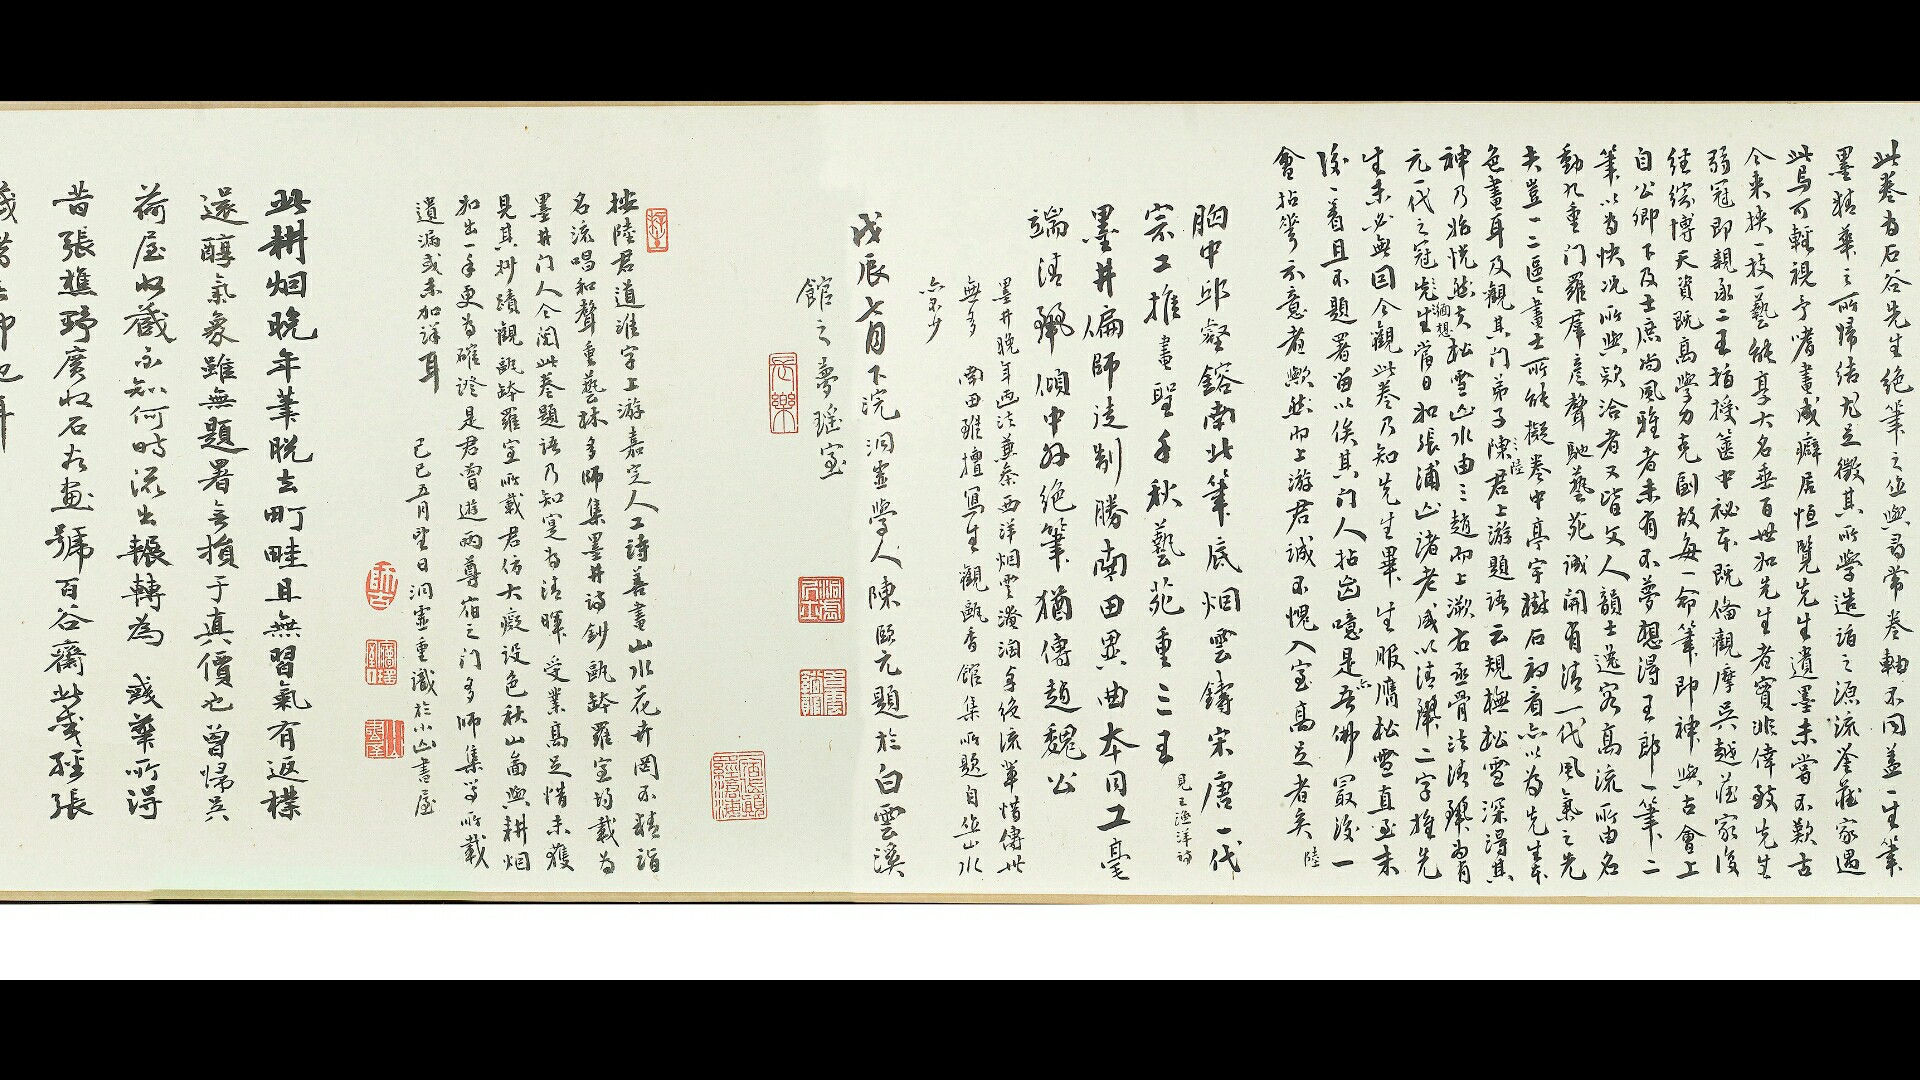 此卷為石谷先生絕筆之作與尋常卷軸不同蓋一生筆
墨精華之所歸結尤足徵其所學造詣之源流鑒藏家遇
此烏可輕視予嗜畫成癖居恒覽先生遺墨未嘗不歎古
今來挾一技一藝能享大名垂百世如先生者實非偉致先生
弱冠即親承二王指授篋中祕本既備觀摩吳越藏家復
經綜博天資既高學力克副故每一命筆即神與古會上
自公卿下及士庶尚風雅者未有不夢想得王郎一筆二
筆以為快況所與款洽者又皆文人韻士逸客高流所由名
動九重門羅羣彥聲馳藝苑誠開有清一代風氣之先
夫豈一二區區畫士所能擬卷中亭宇樹石初看亦以為先生本
色畫耳及觀其門弟子陳陸君上游題語云規橅松雪深得其
神乃始恍然夫松雪山水由三趙而上溯右丞骨法清騑為有
元一代之冠先生當日緬想如張浦山諸老咸以清騑二字推先
生未必無因今觀此卷乃知先生畢生服膺松雪直至末
後一着且不題署當以俟其門人拈出噫是亦吾佛最後一
會拈華示意者歟然而上游君誠不愧入室高足者矣 陸
胸中邱壑鎔南北筆底烟雲鑄宋唐一代
宗工推畫聖千秋藝苑重三王 見王漁洋詩
墨井偏師徒制勝南田異曲本同工毫
端清騑傾中外絕筆猶傳趙魏公
墨井晚年畫法兼參西洋烟雲滃渤身後流輩惜傳世
無多 南田雖擅寫生觀甌香館集所題自作山水
亦不少
戊辰七月下浣洞靈學人陳頤元題於白雲溪
館之夢瑤室
按陸君道淮字上游嘉定人工詩善畫山水花卉罔不精詣
名流唱和聲重藝林多師集墨井詩鈔甌缽羅室均載為
墨井門人今閱此卷題語乃知寔為清暉受業高足惜未獲
見其妙蹟觀甌缽羅室所載君仿大癡設色秋山圖與耕烟
如出一手更為確證是君曾遊兩尊宿之門多師集等所載
遺漏或未加詳耳 己巳五月望日洞靈重識於小山書屋
此耕烟晚年筆脫去町畦且無習氣有返樸
還醇氣象雖無題署無損于真價也曾歸吳
荷屋收藏不知何時流出輾轉為 錢華所得
昔張樵野廣收石谷畫號百谷齋此或經張